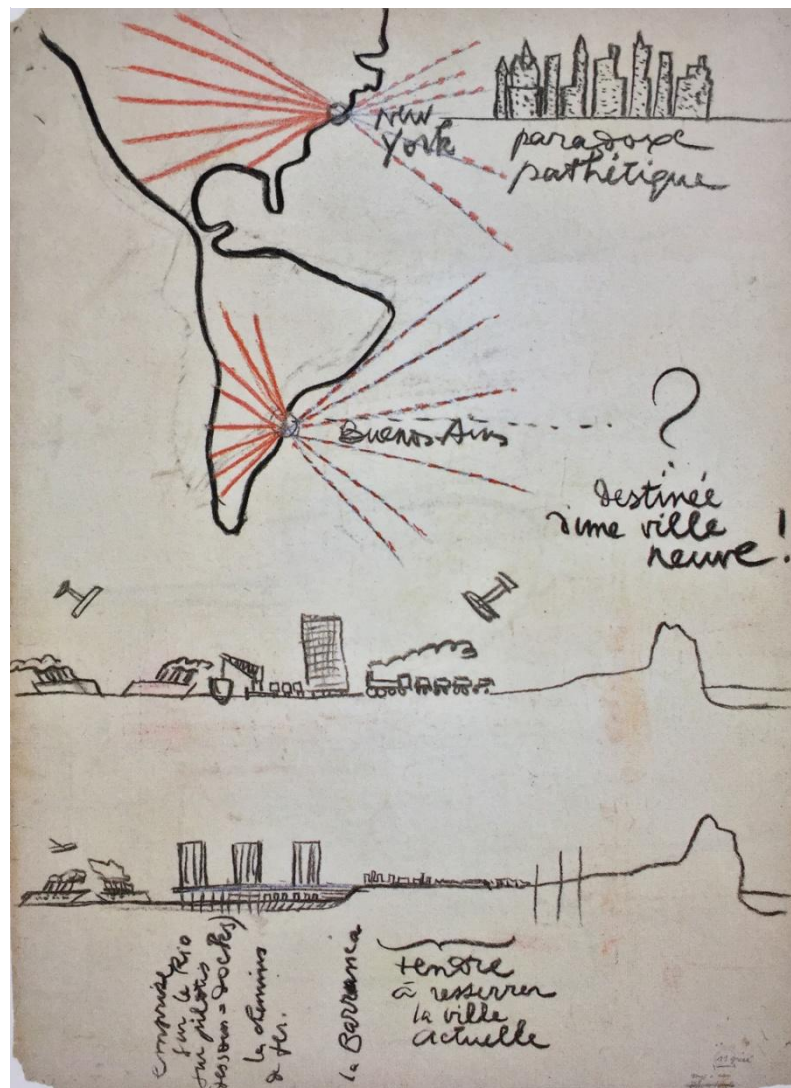 New
York
paradoxe
pathétique
Buenos-Aires
?
destinée
d'une ville
neuve!
emprise
sur le Rio
sur pilotis
dessous = docks)
la chemins
de fer.
la Barranca
tendre
à resserrer
la ville
actuelle